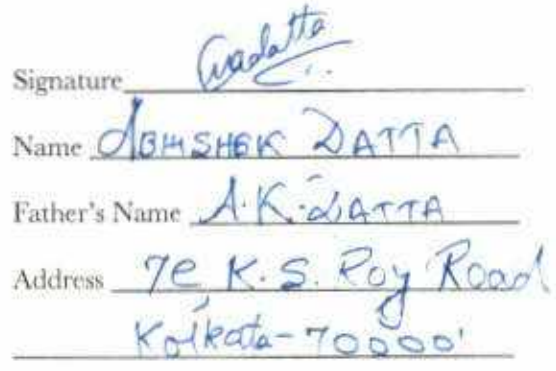 Signature
Name ABHISHEK DATTA
Father's Name A.K. DATTA
Address 7e K.S. Roy Road
Kolkata-700001